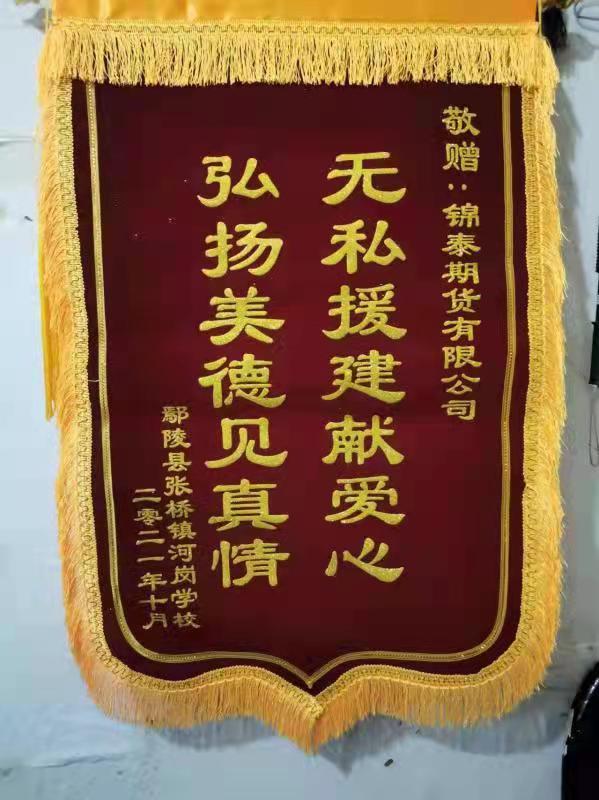 敬赠：锦泰期货有限公司
无私援建献爱心
弘扬美德见真情
鄢陵县张桥镇河岗学校
二零二一年十月